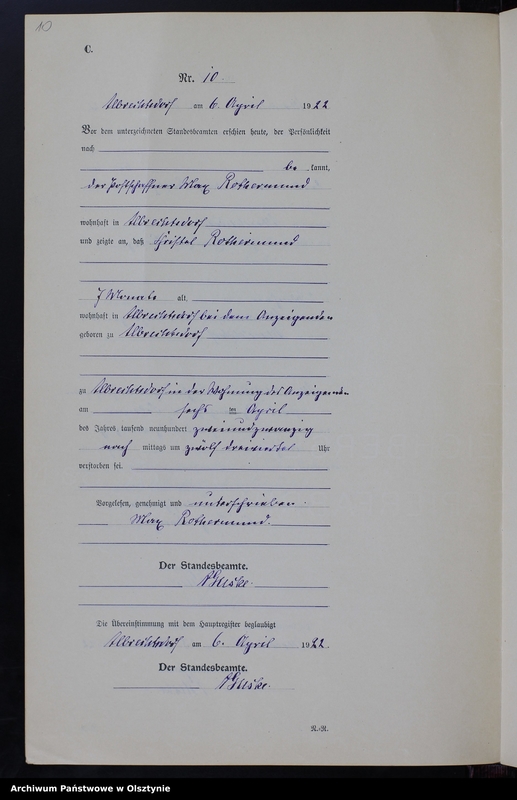 10
C.
Nr. 10.
Albrechtsdorf am 6. April 1922
Vor dem unterzeichneten Standesbeamten erschien heute, der Persönlichkeit
nach
be kannt,
der Postschaffner Max Rothermund
wohnhaft in Albrechtsdorf
und zeigte an, daß Christel Rothermund
7 Monate alt,
wohnhaft in Albrechtsdorf bei dem Anzeigenden
geboren zu Albrechtsdorf
zu Albrechtsdorf in der Wohnung des Anzeigenden
am sechs ten April
des Jahres tausend neunhundert zweiundzwanzig
nach mittags um zwölf dreiviertel Uhr
verstorben sei.
Vorgelesen, genehmigt und unterschrieben.
Max Rothermund.
Der Standesbeamte.
Die Übereinstimmung mit dem Hauptregister beglaubigt
Albrechtsdorf am 6. April 1922.
Der Standesbeamte.
R.-R.
Archiwum Państwowe w Olsztynie